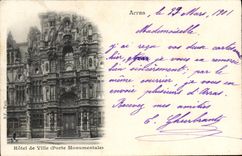 Arras
le 29 Mars, 1901
Mademoiselle
J'ai reçu vos deux cartes
hier, dont je vous remercie
bien sincèrement; par le
même courrier, je vous en
envoie plusieurs d'Arras.
Recevez mes amitiés
Hôtel de Ville (Porte Monumentale)